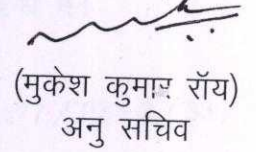 (मुकेश कुमार रॉय)
अनु सचिव